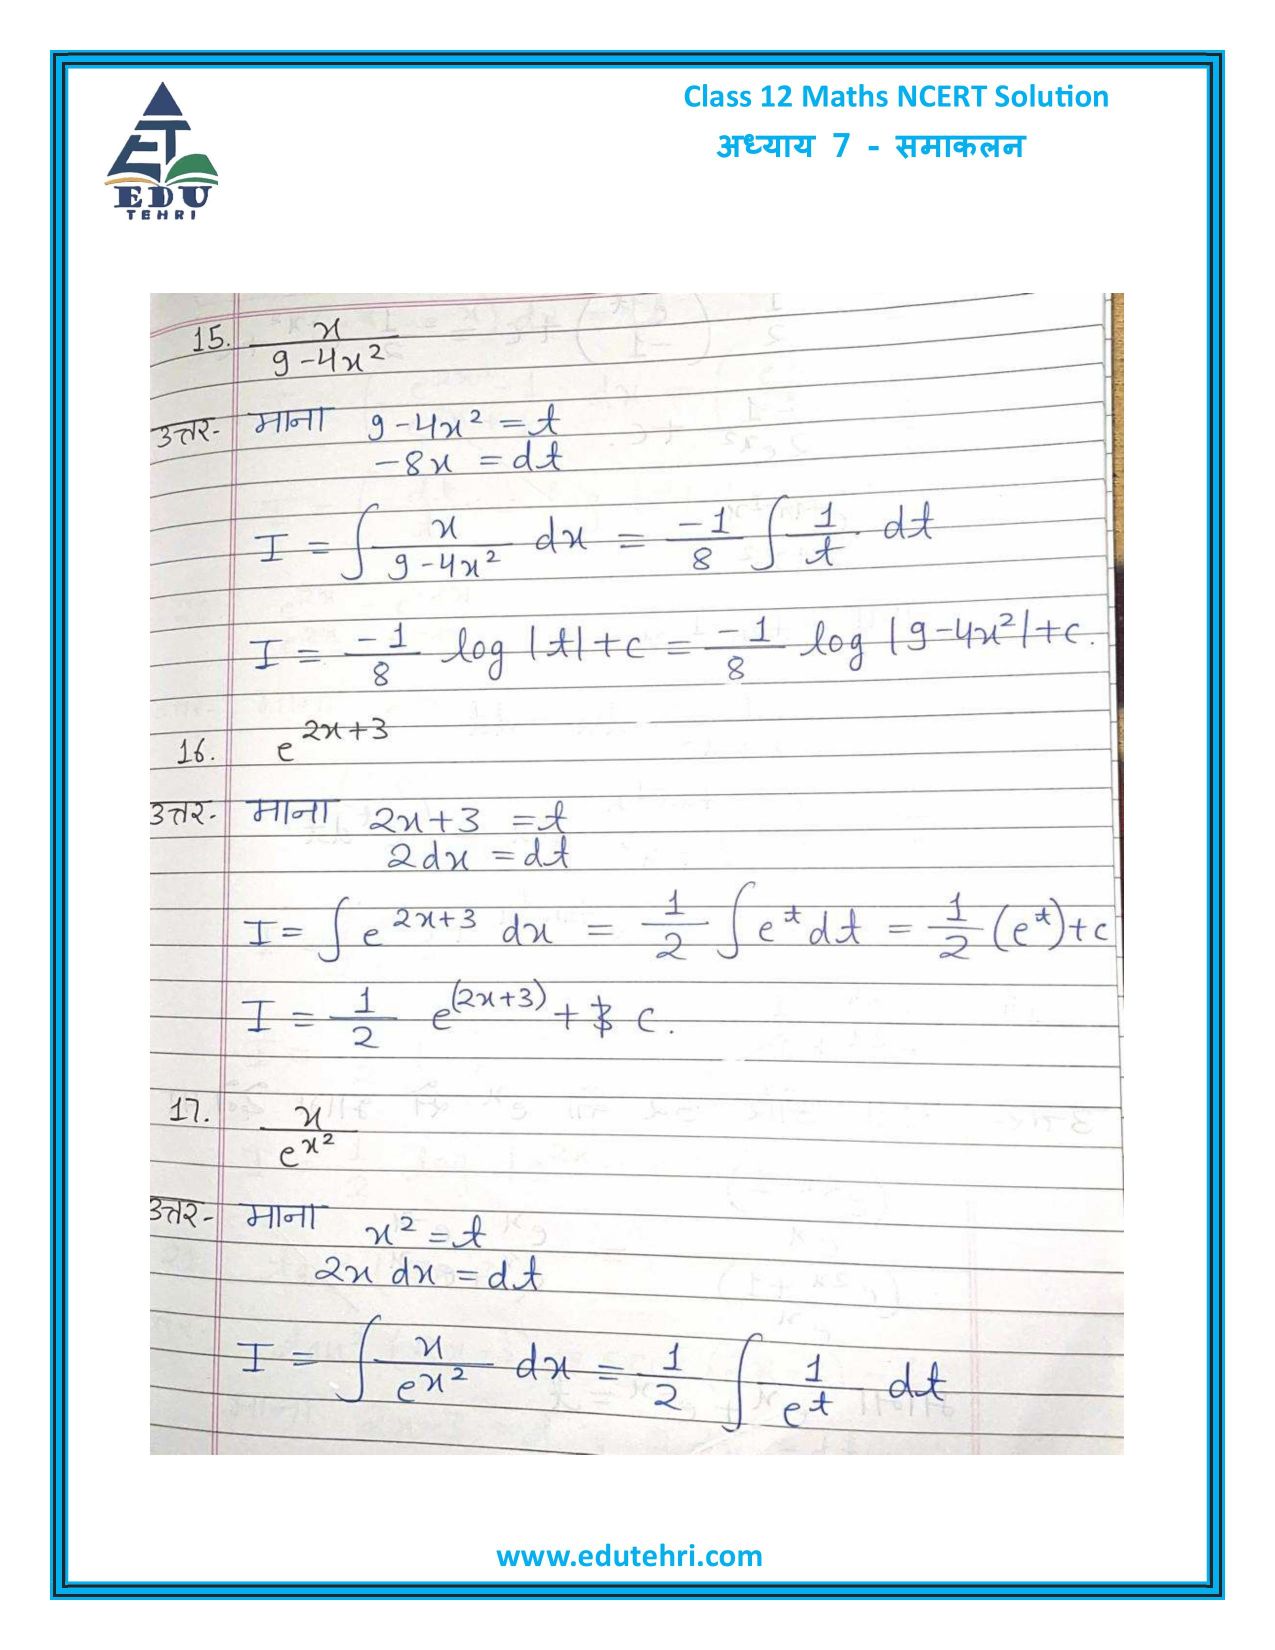 EDU
TEHRI
Class 12 Maths NCERT Solution
अध्याय 7 - समाकलन
15. x / (9-4x²)
उत्तर- माना 9-4x² = t
-8x = dt
I = ∫ x / (9-4x²) dx = -1/8 ∫ 1/t . dt
I = -1/8 log |t|+c = -1/8 log |9-4x²|+c.
16. e^(2x+3)
उत्तर- माना 2x+3 = t
2dx = dt
I = ∫ e^(2x+3) dx = 1/2 ∫ e^t dt = 1/2 (e^t)+c
I = 1/2 e^(2x+3) + c.
17. x / e^x²
उत्तर- माना x² = t
2x dx = dt
I = ∫ x / e^x² dx = 1/2 ∫ 1/e^t dt
www.edutehri.com